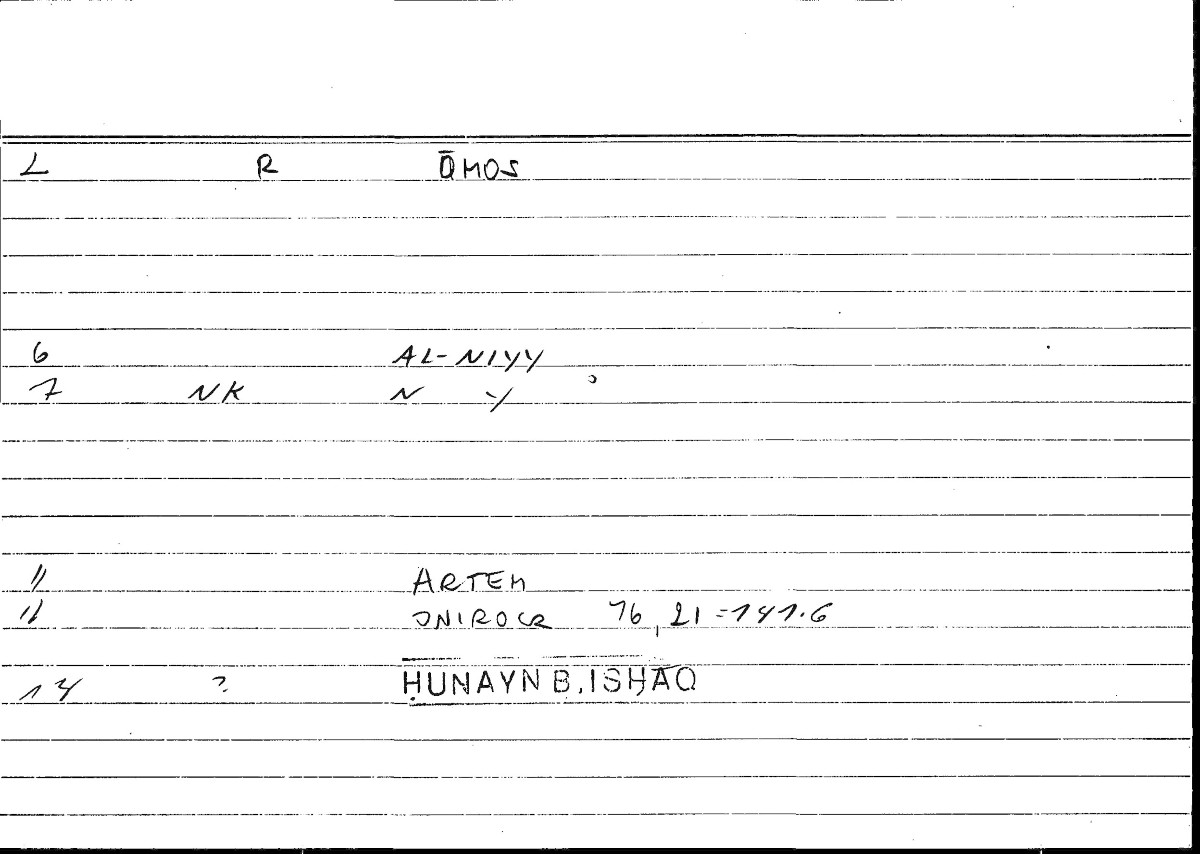 L R ŌMOS
6 AL-NIYY
7 NK N Y
11 ARTEM
11 ONIROCR 76, 21 = 141.6
14 ? ḤUNAYN B. ISḤĀQ